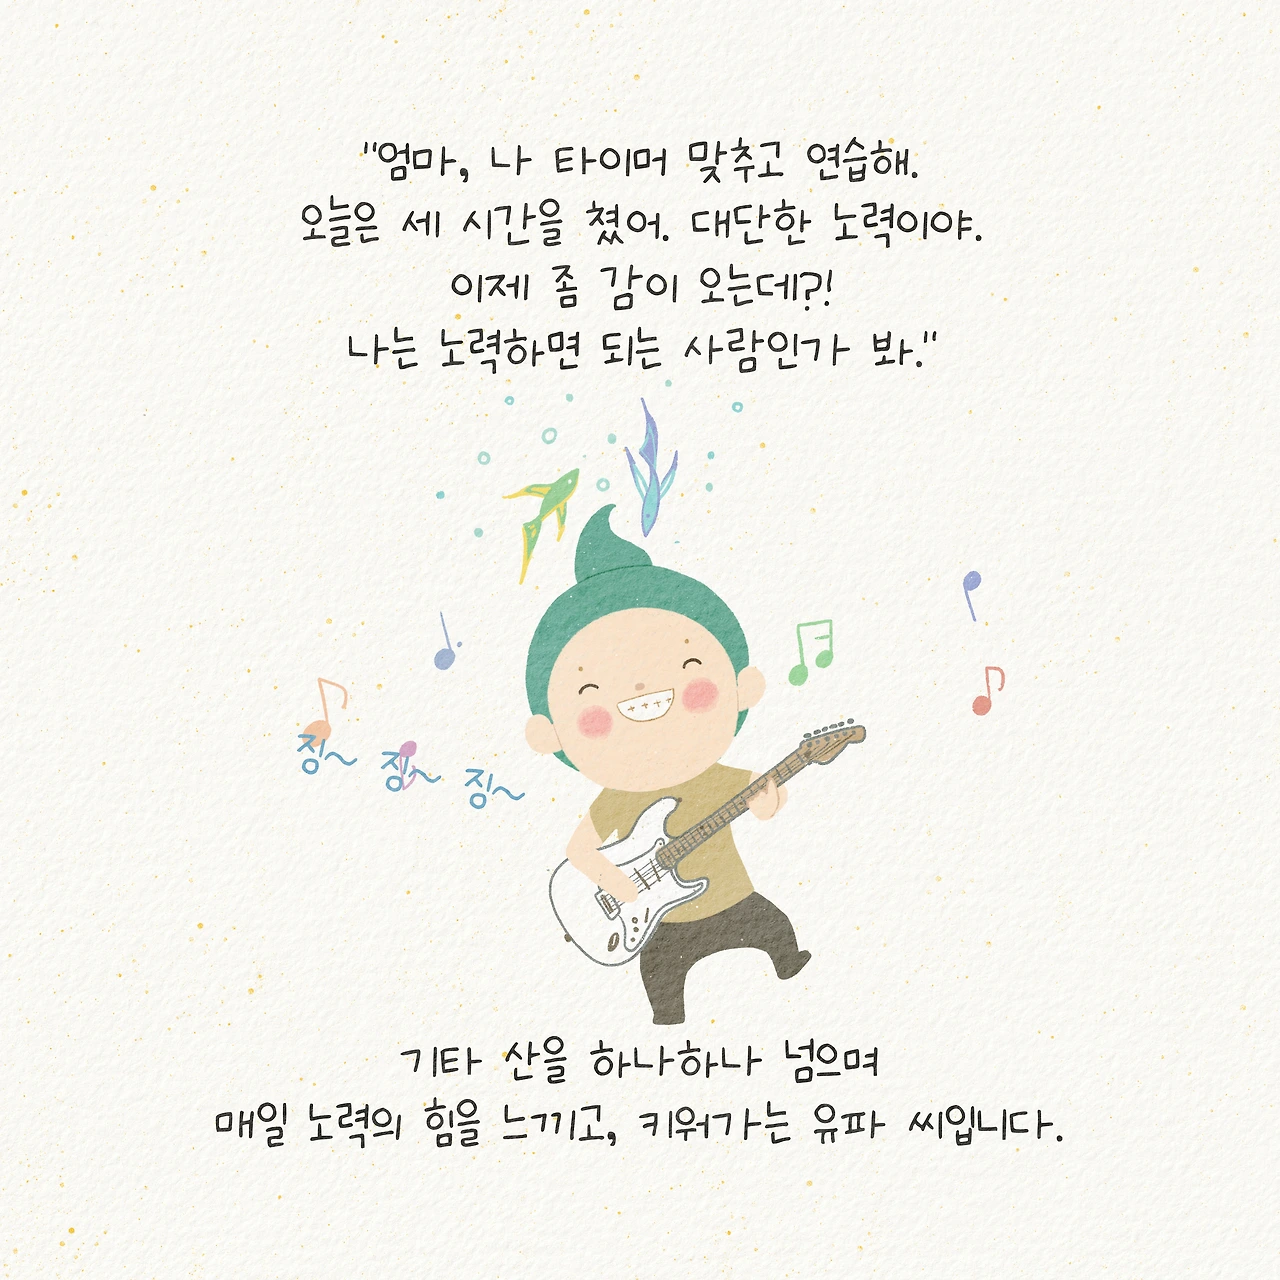 "엄마, 나 타이머 맞추고 연습해.
오늘은 세 시간을 쳤어. 대단한 노력이야.
이제 좀 감이 오는데?!
나는 노력하면 되는 사람인가 봐."
징~ 징~ 징~
기타 산을 하나하나 넘으며
매일 노력의 힘을 느끼고, 키워가는 유파 씨입니다.